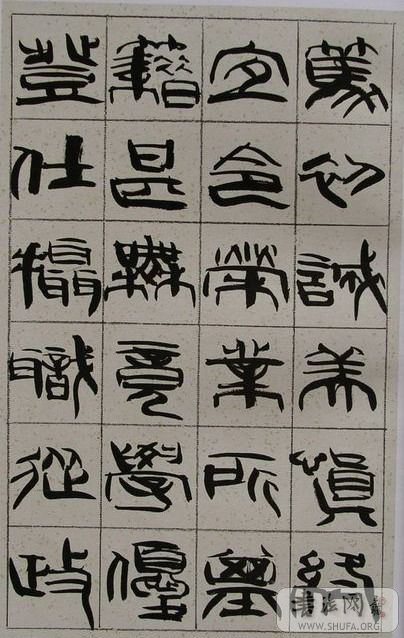 篤初誠美慎終
宜令榮業所基
籍甚無竟學優
登仕攝職從政
书法网
WWW.SHUFA.ORG